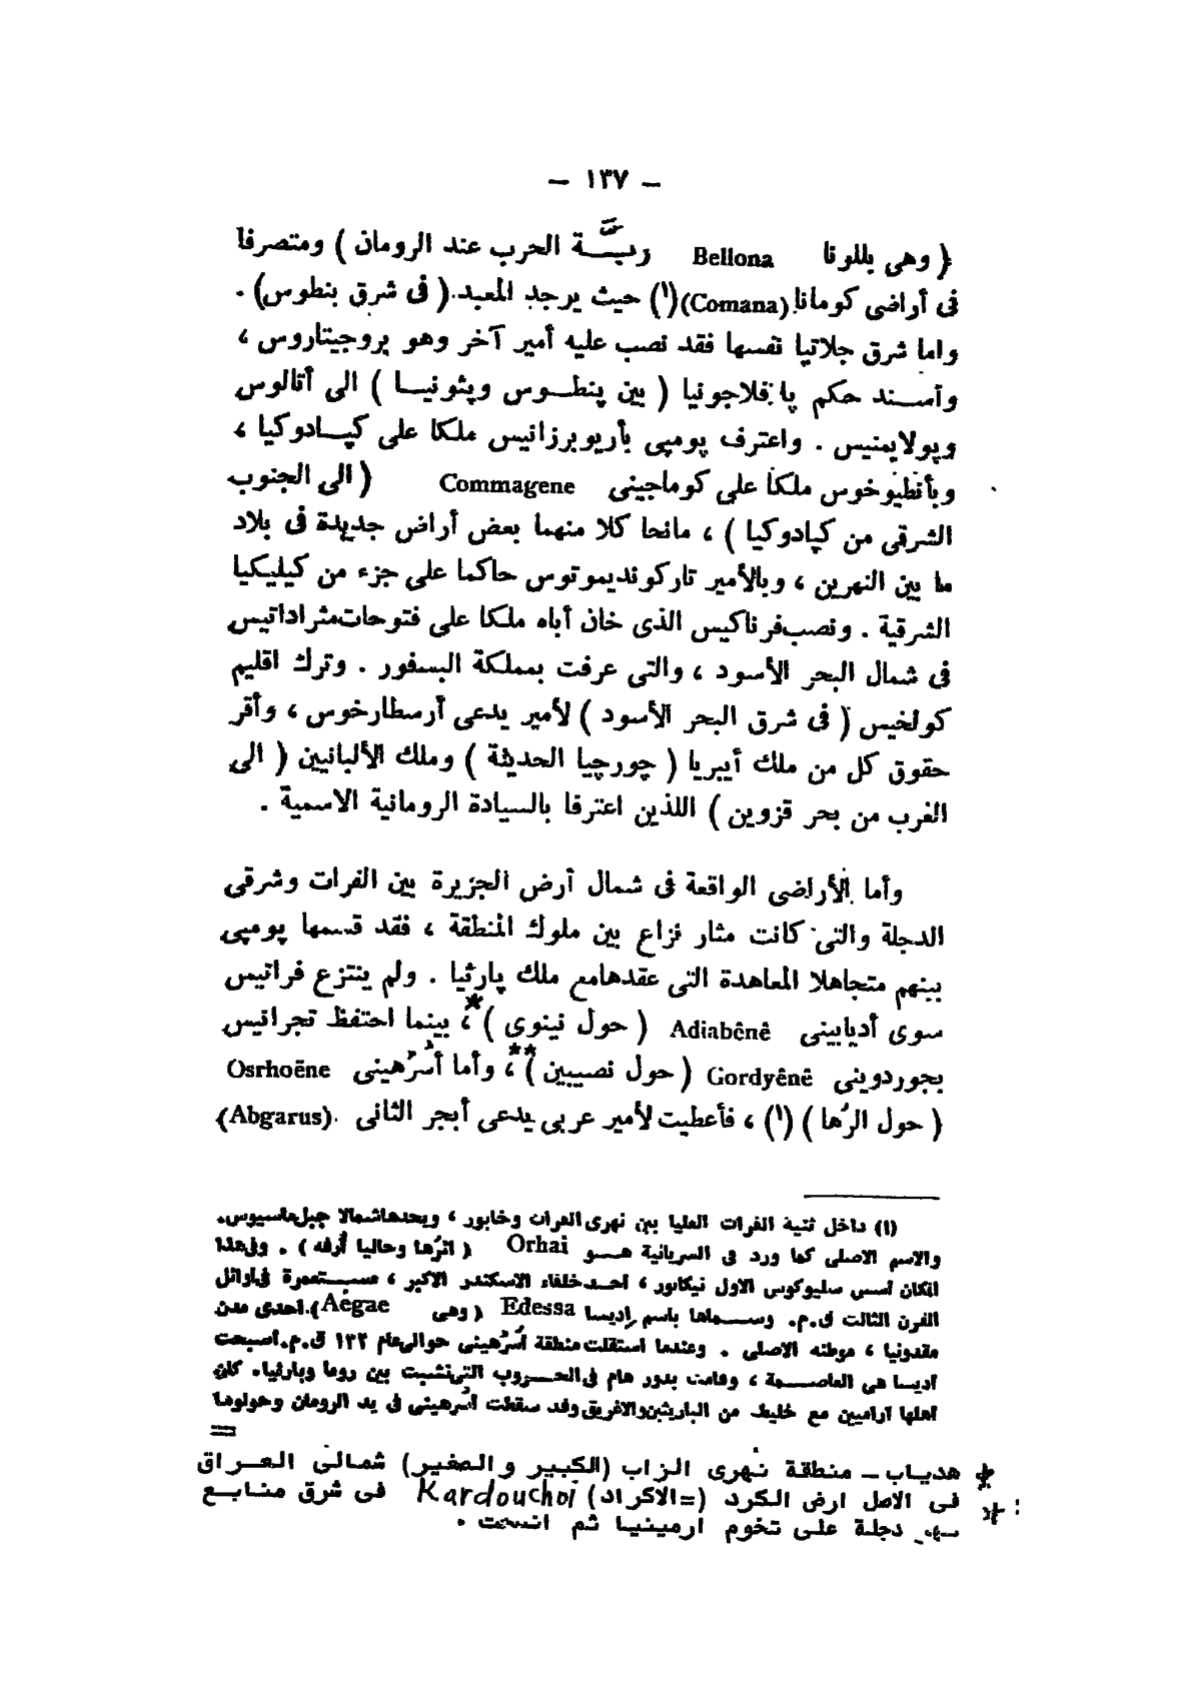 — ١٣٧ —
( وهى بللونا Bellona ربــة الحرب عند الرومان ) ومتصرفا
فى أراضى كومانا (Comana)(١) حيث يرجد المعبد ( فى شرق بنطوس) .
واما شرق جلاتيا نفسها فقد نصب عليه أمير آخر وهو بروجيتاروس ،
وأسند حكم پافلاجونيا ( بين پنطوس وپثونيا ) الى أتالوس
وپولايمنيس . واعترف پومپى بأريوبرزانيس ملكا على كپادوكيا ،
وبأنطيوخوس ملكا على كوماجينى Commagene ( الى الجنوب
الشرقى من كپادوكيا ) ، مانحا كلا منهما بعض أراض جديدة فى بلاد
ما بين النهرين ، وبالأمير تاركونديموتوس حاكما على جزء من كيليكيا
الشرقية . ونصب فرناكيس الذى خان أباه ملكا على فتوحات مثراداتيس
فى شمال البحر الأسود ، والتى عرفت بمملكة البسفور . وترك اقليم
كولخيس ( فى شرق البحر الأسود ) لأمير يدعى أرسطارخوس ، وأقر
حقوق كل من ملك أيبريا ( چورچيا الحديثة ) وملك الألبانيين ( الى
الغرب من بحر قزوين ) اللذين اعترفا بالسيادة الرومانية الاسمية .
وأما الأراضى الواقعة فى شمال أرض الجزيرة بين الفرات وشرقى
الدجلة والتى كانت مثار نزاع بين ملوك المنطقة ، فقد قسمها پومپى
بينهم متجاهلا المعاهدة التى عقدها مع ملك پارثيا . ولم ينتزع فراتيس
سوى أديابينى Adiabênê ( حول نينوى )* ، بينما احتفظ تجرانيس
بجوردوينى Gordyênê ( حول نصيبين )** ، وأما أسرهينى Osrhoëne
( حول الرُها ) (١) ، فأعطيت لأمير عربى يدعى أبجر الثانى (Abgarus).
(١) داخل ثنية الفرات العليا بين نهرى الفرات وخابور ، ويحدها شمالا جبل ماسيوس.
والاسم الاصلى كما ورد فى السريانية هــو Orhai ( الرُها وحاليا أُرفه ) . وفى هذا
المكان أسس سليوكوس الاول نيكاتور ، أحد خلفاء الاسكندر الاكبر ، مستعمرة فى أوائل
القرن الثالث ق.م. وسماها باسم إديسا Edessa ( وهى Aegae) احدى مدن
مقدونيا ، موطنه الاصلى . وعندما استقلت منطقة أسرهينى حوالى عام ١٣٢ ق.م. أصبحت
أديسا هى العاصمة ، وقامت بدور هام فى الحروب التى نشبت بين روما وبارثيا. كان
أهلها آراميين مع خليط من البارثيين والاغريق وقد سقطت أسرهينى فى يد الرومان وحولوها
=
* هدياب - منطقة نهرى الزاب (الكبير والصغير) شمالى العراق
** فى الاصل ارض الكرد (=الاكراد) Kardouchoi فى شرق منابع
دجلة على تخوم ارمينيا ثم اتسعت .